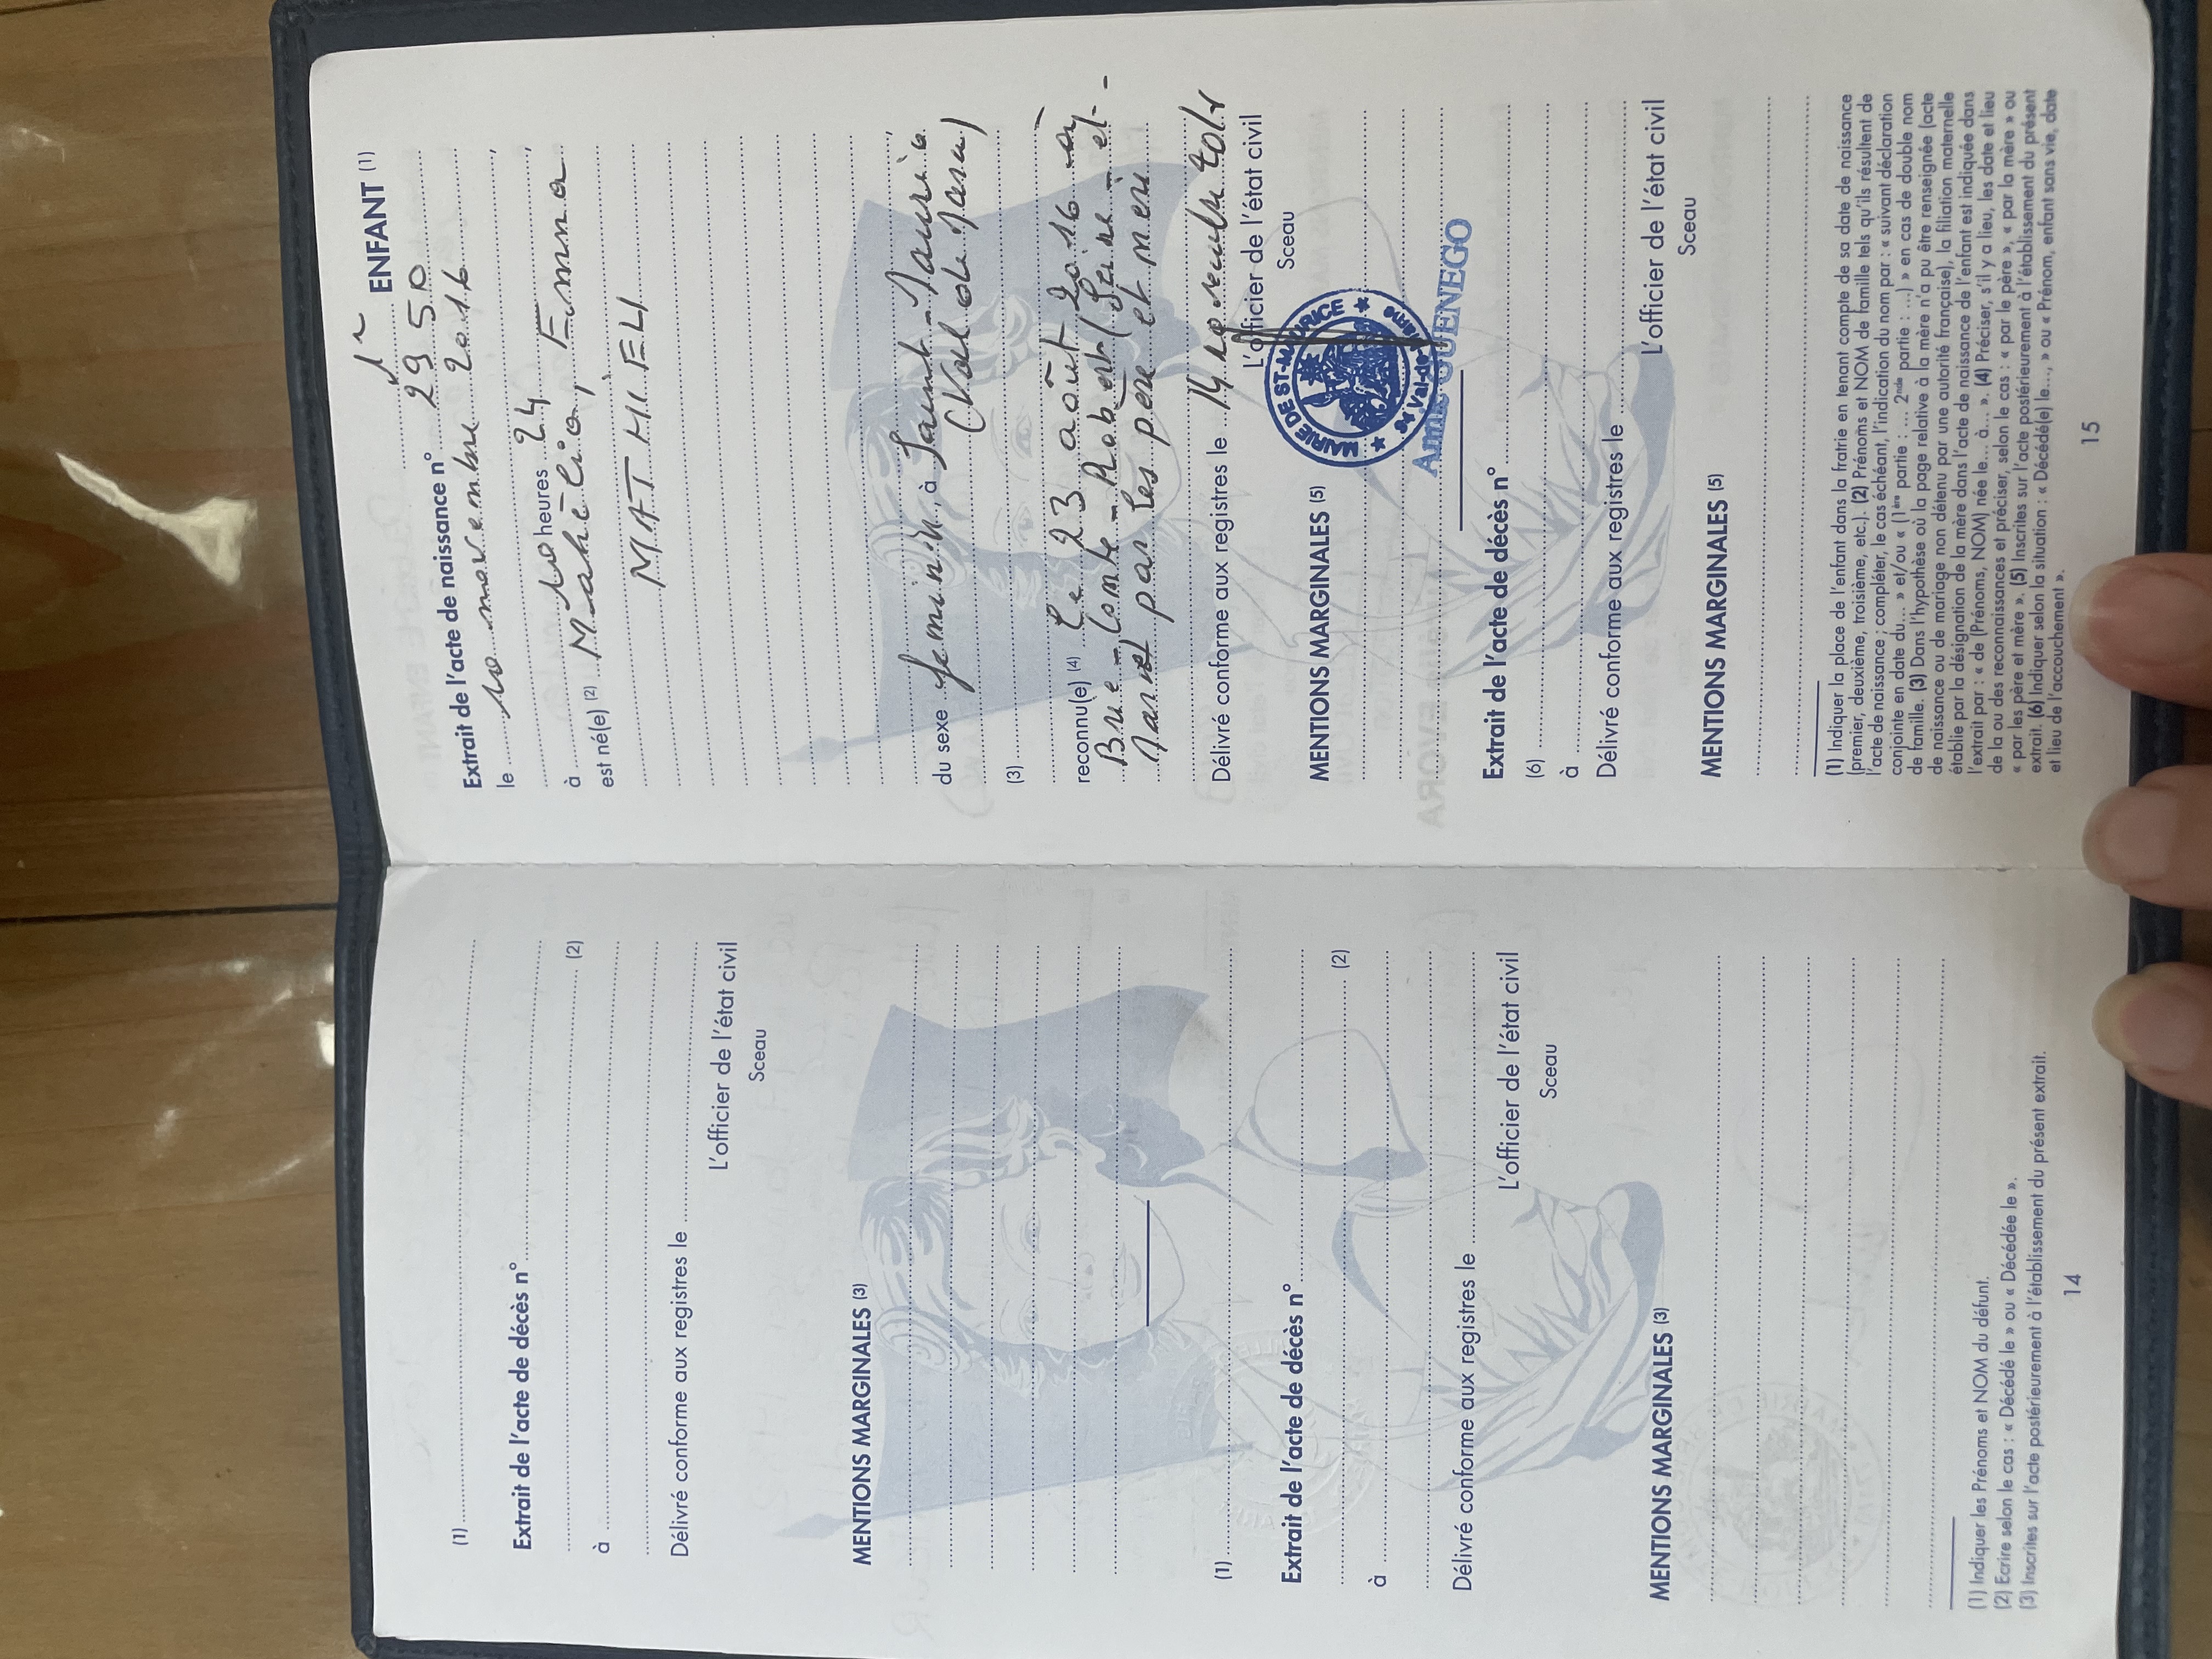 (1)
Extrait de l'acte de décès n°
(2)
à
Délivré conforme aux registres le
L'officier de l'état civil
Sceau
MENTIONS MARGINALES (3)
(1)
Extrait de l'acte de décès n°
(2)
à
Délivré conforme aux registres le
L'officier de l'état civil
Sceau
MENTIONS MARGINALES (3)
(1) Indiquer les Prénoms et NOM du défunt.
(2) Ecrire selon le cas : « Décédé le » ou « Décédée le ».
(3) Inscrites sur l'acte postérieurement à l'établissement du présent extrait.
14
1er ENFANT (1)
Extrait de l'acte de naissance n° 2950
le 10 novembre 2016,
à 10 heures 24,
est né(e) (2) Emma
MATHIEU
du sexe féminin, à Saint-Maurice,
(Val de Marne)
(3)
reconnu(e) (4) Le 23 août 2016 à
Brie-Comte-Robert (Seine-et-
Marne) par les père et mère
Délivré conforme aux registres le 14 novembre 2016
L'officier de l'état civil
Sceau
MAIRIE DE ST-MAURICE
94 Val-de-Marne
GUENEGO
MENTIONS MARGINALES (5)
Extrait de l'acte de décès n°
(6)
à
Délivré conforme aux registres le
L'officier de l'état civil
Sceau
MENTIONS MARGINALES (5)
(1) Indiquer la place de l'enfant dans la fratrie en tenant compte de sa date de naissance
(premier, deuxième, troisième, etc.). (2) Prénoms et NOM de famille tels qu'ils résultent de
l'acte de naissance ; compléter, le cas échéant, l'indication du nom par : « suivant déclaration
conjointe en date du... » et/ou « (1ère partie : ... 2nde partie : ...) » en cas de double nom
de famille. (3) Dans l'hypothèse où la page relative à la mère n'a pu être renseignée (acte
de naissance ou de mariage non détenu par une autorité française), la filiation maternelle
établie par la désignation de la mère dans l'acte de naissance de l'enfant est indiquée dans
l'extrait par : « de (Prénoms, NOM) née le... à... ». (4) Préciser, s'il y a lieu, les date et lieu
de la ou des reconnaissances et préciser, selon le cas : « par le père », « par la mère » ou
« par les père et mère ». (5) Inscrites sur l'acte postérieurement à l'établissement du présent
extrait. (6) Indiquer selon la situation : « Décédé(e) le..., » ou « Prénom, enfant sans vie, date
et lieu de l'accouchement ».
15